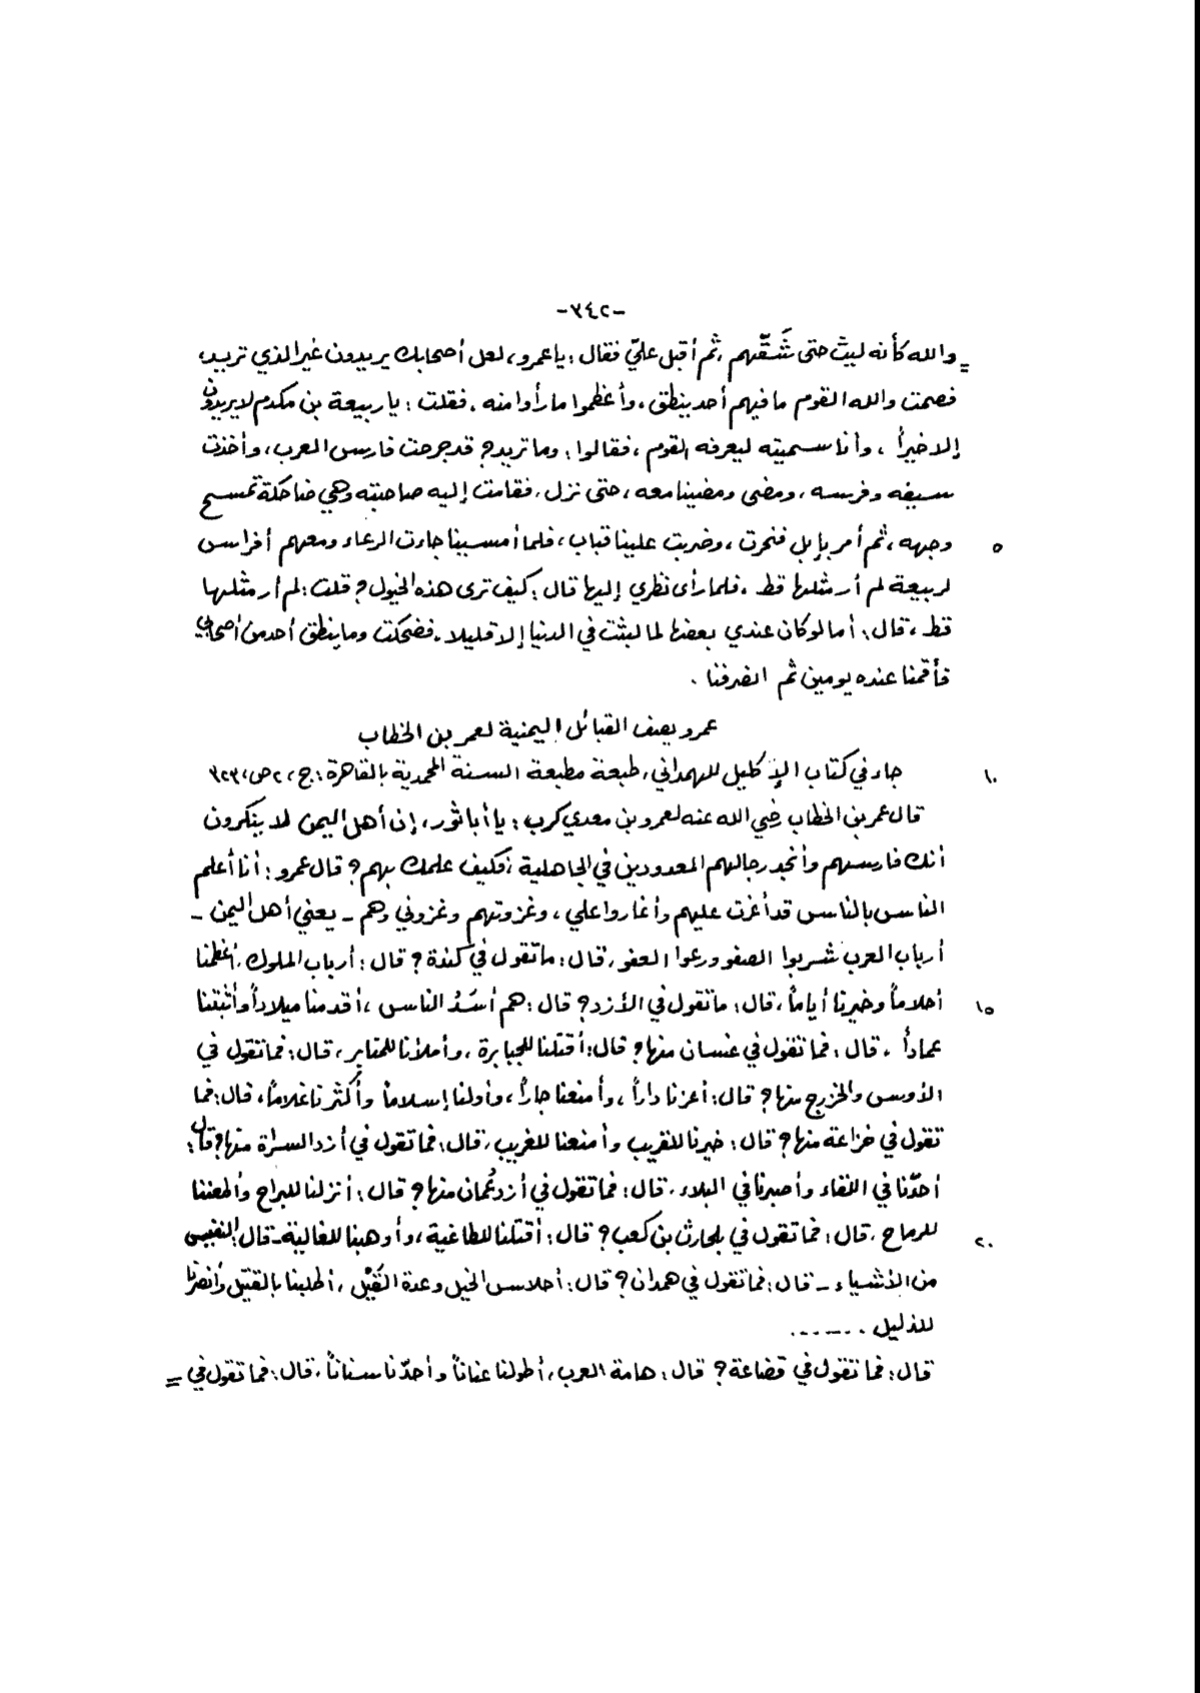 -٣٤٢-
= والله كأنه ليث حتى شَقَّهم، ثم أقبل عليّ فقال: يا عمرو، لعل أصحابك يريدون غير الذي تريد،
فصمت والله القوم ما فيهم أحد ينطق، وأعظموا ما رأوا منه. فقلت: يا ربيعة بن مكدم لا يريدون
إلا خيراً، وأنا سميته ليعرفه القوم، فقالوا: وما تريد؟ قد جرحت فارس العرب، وأخذت
سيفه وفرسه، ومضى ومضينا معه، حتى نزل، فقامت إليه صاحبته وهي ضاحكة تمسح
٥ وجهه، ثم أمر بإبل فنحرت، وضربت علينا قباب، فلما أمسينا جاءت الرعاء ومعهم أفراس
لربيعة لم أر مثلها قط. فلما رأى نظري إليها قال: كيف ترى هذه الخيول؟ قلت: لم أر مثلها
قط، قال: أما لو كان عندي بعضها لما لبثت في الدنيا إلا قليلا. فضحكت وما ينطق أحد من أصحابي
فأقمنا عنده يومين ثم انصرفنا.
عمرو يصف القبائل اليمنية لعمر بن الخطاب
١٠ جاء في كتاب الإكليل للهمداني، طبعة مطبعة السنة المحمدية بالقاهرة: ج، ٢ ص، ٣٢٣
قال عمر بن الخطاب رضي الله عنه لعمرو بن معدي كرب: يا أبا ثور، إن أهل اليمن لا ينكرون
أنك فارسهم وأنجد رجالهم المعدودين في الجاهلية، فكيف علمك بهم؟ قال عمرو: أنا أعلم
الناس بالناس قد أغرت عليهم وأغاروا علي، وغزوتهم وغزوني وهم - يعني أهل اليمن -
أرباب العرب شربوا الصفو ورعوا العفو، قال: ما تقول في كندة؟ قال: أرباب الملوك، أعظمنا
١٥ أحلاماً وخيرنا أياماً، قال: ما تقول في الأزد؟ قال: هم أُسْدُ الناس، أقدمنا ميلاداً وأثبتنا
عماداً. قال: فما تقول في غسان منها؟ قال: أقتلنا للجبابرة، وأملأنا للمنابر، قال: فما تقول في
الأوس والخزرج منها؟ قال: أعزنا داراً، وأمنعنا جاراً، وأولنا إسلاماً وأكثرنا غلاماً، قال: فما
تقول في خزاعة منها؟ قال: خيرنا للقريب وأمنعنا للغريب، قال: فما تقول في أزد السراة منها؟ قال:
أحدّنا في اللقاء وأصبرنا في البلاء، قال: فما تقول في أزد عُمان منها؟ قال: أنزلنا للبراح وأطعننا
٢٠ للرماح، قال: فما تقول في بلحارث بن كعب؟ قال: أقتلنا للطاغية، وأوهبنا للغالية - قال: النفيس
من الأشياء - قال: فما تقول في همدان؟ قال: أحلاس الخيل وعدة القَيْل، أطلبنا بالقتيل وأنصرنا
للذليل .......
قال: فما تقول في قضاعة؟ قال: هامة العرب، أطولنا عناناً وأحدّنا سناناً، قال: فما تقول في =